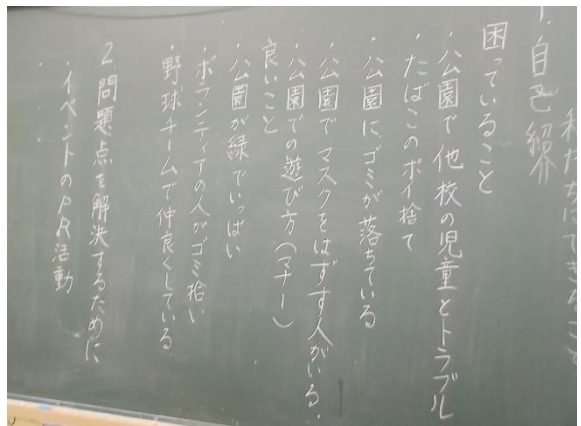 私たちにできること
1.自己紹介
困っていること
・公園で他校の児童とトラブル
・たばこのポイ捨て
・公園にゴミが落ちている
・公園でマスクをはずす人がいる.
・公園での遊び方(マナー)
良いこと
・公園が緑でいっぱい
・ボランティアの人がゴミ拾い
・野球チームで仲良くしている
2.問題点を解決するために
・イベントのPR活動
・